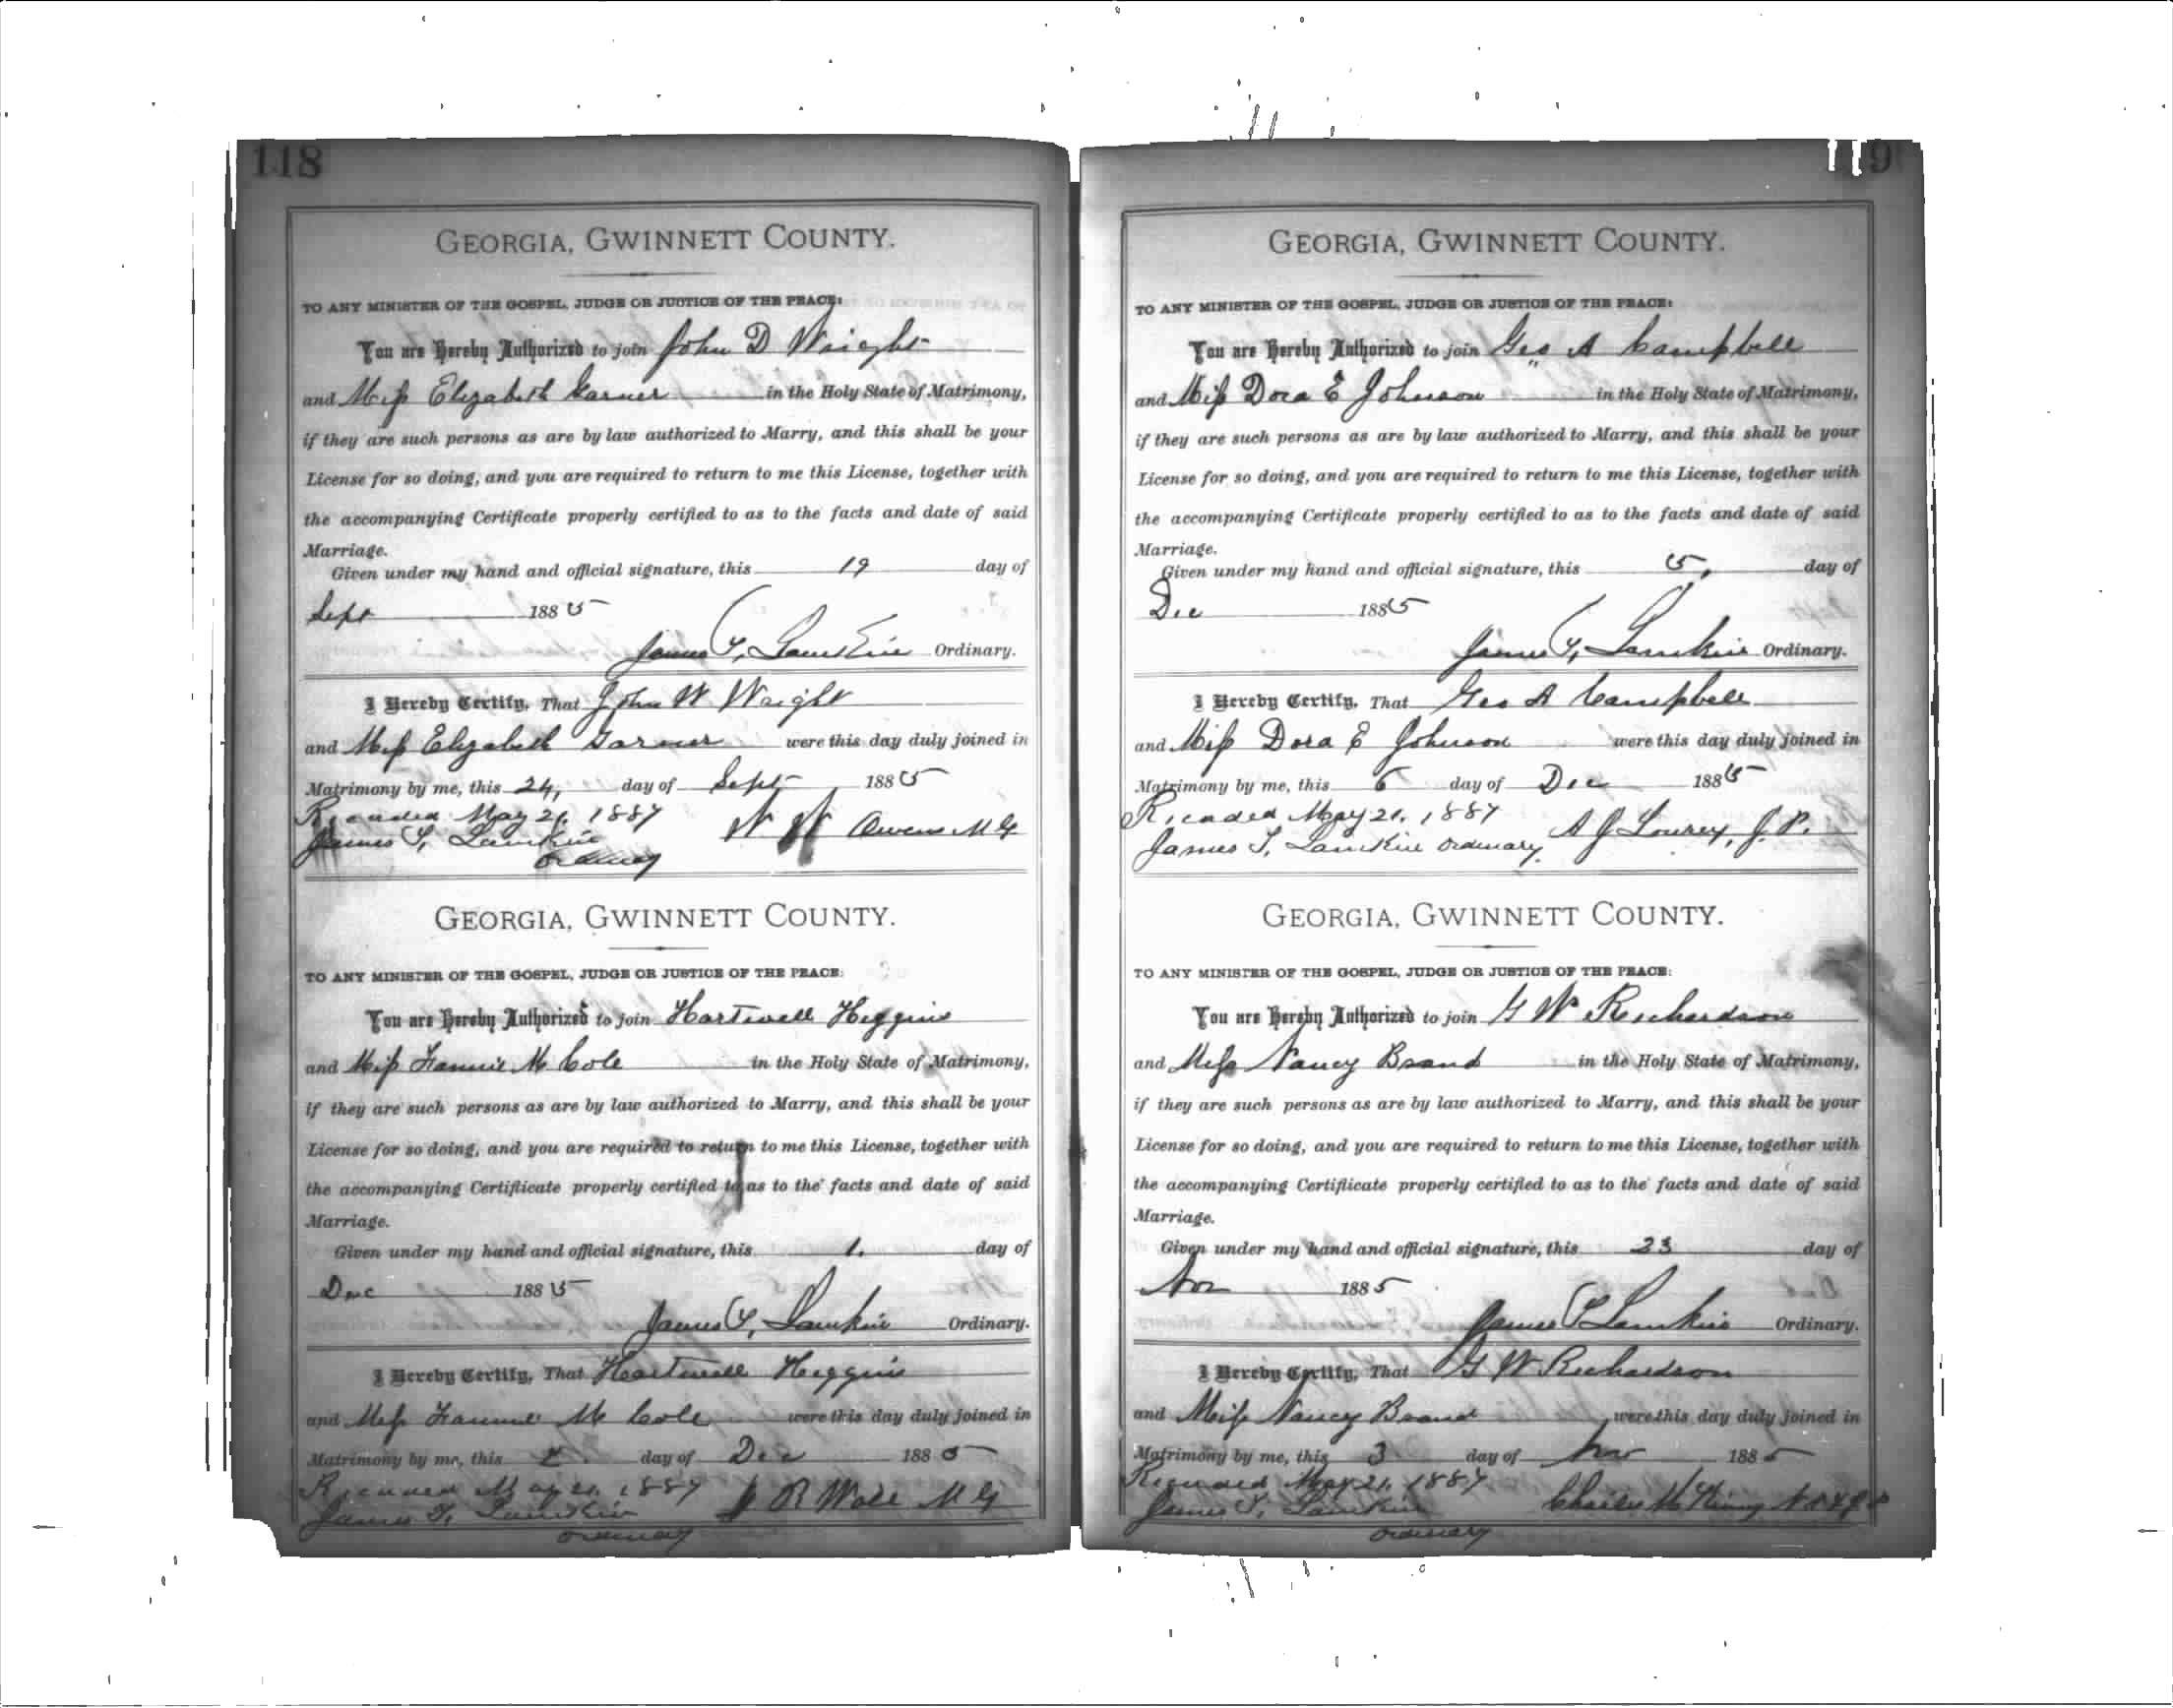 118
GEORGIA, GWINNETT COUNTY.
TO ANY MINISTER OF THE GOSPEL, JUDGE OR JUSTICE OF THE PEACE:
You are Hereby Authorized to join John D Wright
and Miss Elizabeth Garner in the Holy State of Matrimony,
if they are such persons as are by law authorized to Marry, and this shall be your
License for so doing, and you are required to return to me this License, together with
the accompanying Certificate properly certified to as to the facts and date of said
Marriage.
Given under my hand and official signature, this 19 day of
Sept 1885
James T, Lamkin Ordinary.
I Hereby Certify, That John W Wright
and Miss Elizabeth Garner were this day duly joined in
Matrimony by me, this 24, day of Sept 1885
Recorded May 21, 1887
W W Owens M G
James T, Lamkin
ordinary
GEORGIA, GWINNETT COUNTY.
TO ANY MINISTER OF THE GOSPEL, JUDGE OR JUSTICE OF THE PEACE:
You are Hereby Authorized to join Hartwell Higgins
and Miss Fannie M Cole in the Holy State of Matrimony,
if they are such persons as are by law authorized to Marry, and this shall be your
License for so doing, and you are required to return to me this License, together with
the accompanying Certificate properly certified to as to the facts and date of said
Marriage.
Given under my hand and official signature, this 1. day of
Dec 1885
James T, Lamkin Ordinary.
I Hereby Certify, That Hartwell Higgins
and Miss Fannie M Cole were this day duly joined in
Matrimony by me, this day of Dec 1885
Recorded May 21, 1887
R Wall M G
James T, Lamkin
ordinary
119
GEORGIA, GWINNETT COUNTY.
TO ANY MINISTER OF THE GOSPEL, JUDGE OR JUSTICE OF THE PEACE:
You are Hereby Authorized to join Geo A Campbell
and Miss Dora E Johnson in the Holy State of Matrimony,
if they are such persons as are by law authorized to Marry, and this shall be your
License for so doing, and you are required to return to me this License, together with
the accompanying Certificate properly certified to as to the facts and date of said
Marriage.
Given under my hand and official signature, this 5, day of
Dec 1885
James T, Lamkin Ordinary.
I Hereby Certify, That Geo A Campbell
and Miss Dora E Johnson were this day duly joined in
Matrimony by me, this 6 day of Dec 1885
Recorded May 21, 1887
A J Lowrey, J. P.
James T, Lamkin ordinary.
GEORGIA, GWINNETT COUNTY.
TO ANY MINISTER OF THE GOSPEL, JUDGE OR JUSTICE OF THE PEACE:
You are Hereby Authorized to join G W Richardson
and Miss Nancy Brand in the Holy State of Matrimony,
if they are such persons as are by law authorized to Marry, and this shall be your
License for so doing, and you are required to return to me this License, together with
the accompanying Certificate properly certified to as to the facts and date of said
Marriage.
Given under my hand and official signature, this 23 day of
Nov 1885
James T Lamkin Ordinary.
I Hereby Certify, That G W Richardson
and Miss Nancy Brand were this day duly joined in
Matrimony by me, this 3 day of Nov 1885
Recorded May 21, 1887
James T, Lamkin
ordinary